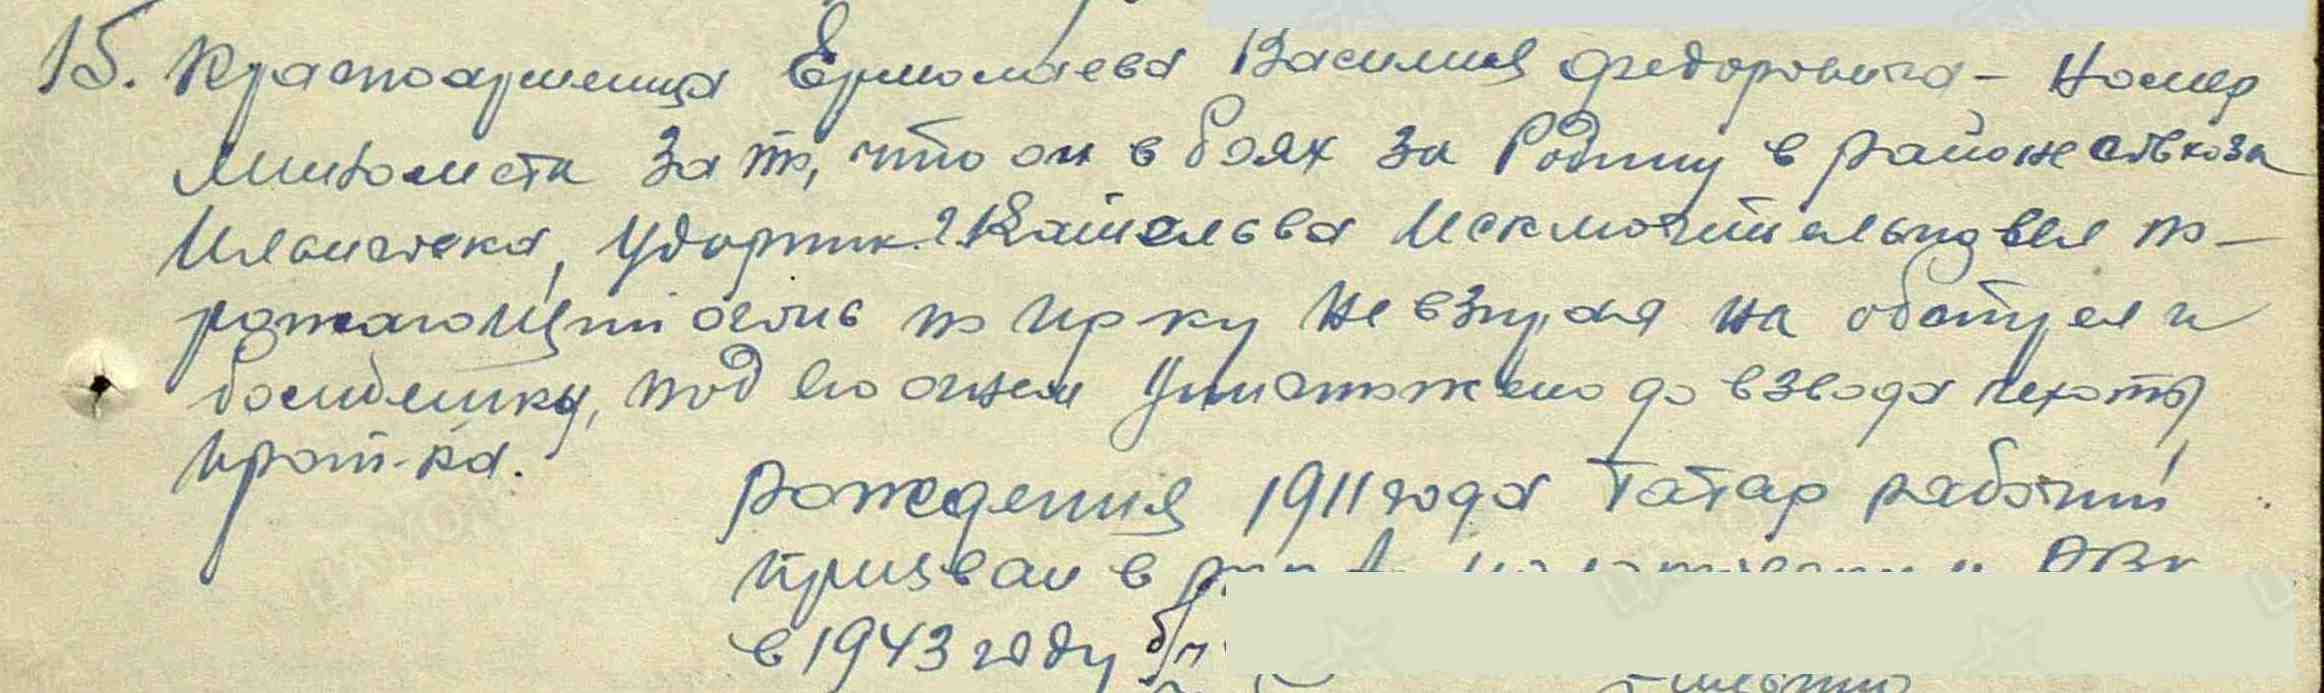 15. Красноармейца Ермолаева Василия Федоровича – номер
миномета за то, что он в боях за Родину в районе совхоза
Ильичевка, Ударник г. Кательва исключительно вел по-
ражающий огонь по пр-ку невзирая на обстрел и
бомбежку, под его огнем уничтожено до взвода пехоты
прот-ка.
рождения 1911 года татар рабочий
призван в РВК
в 1943 году б/п